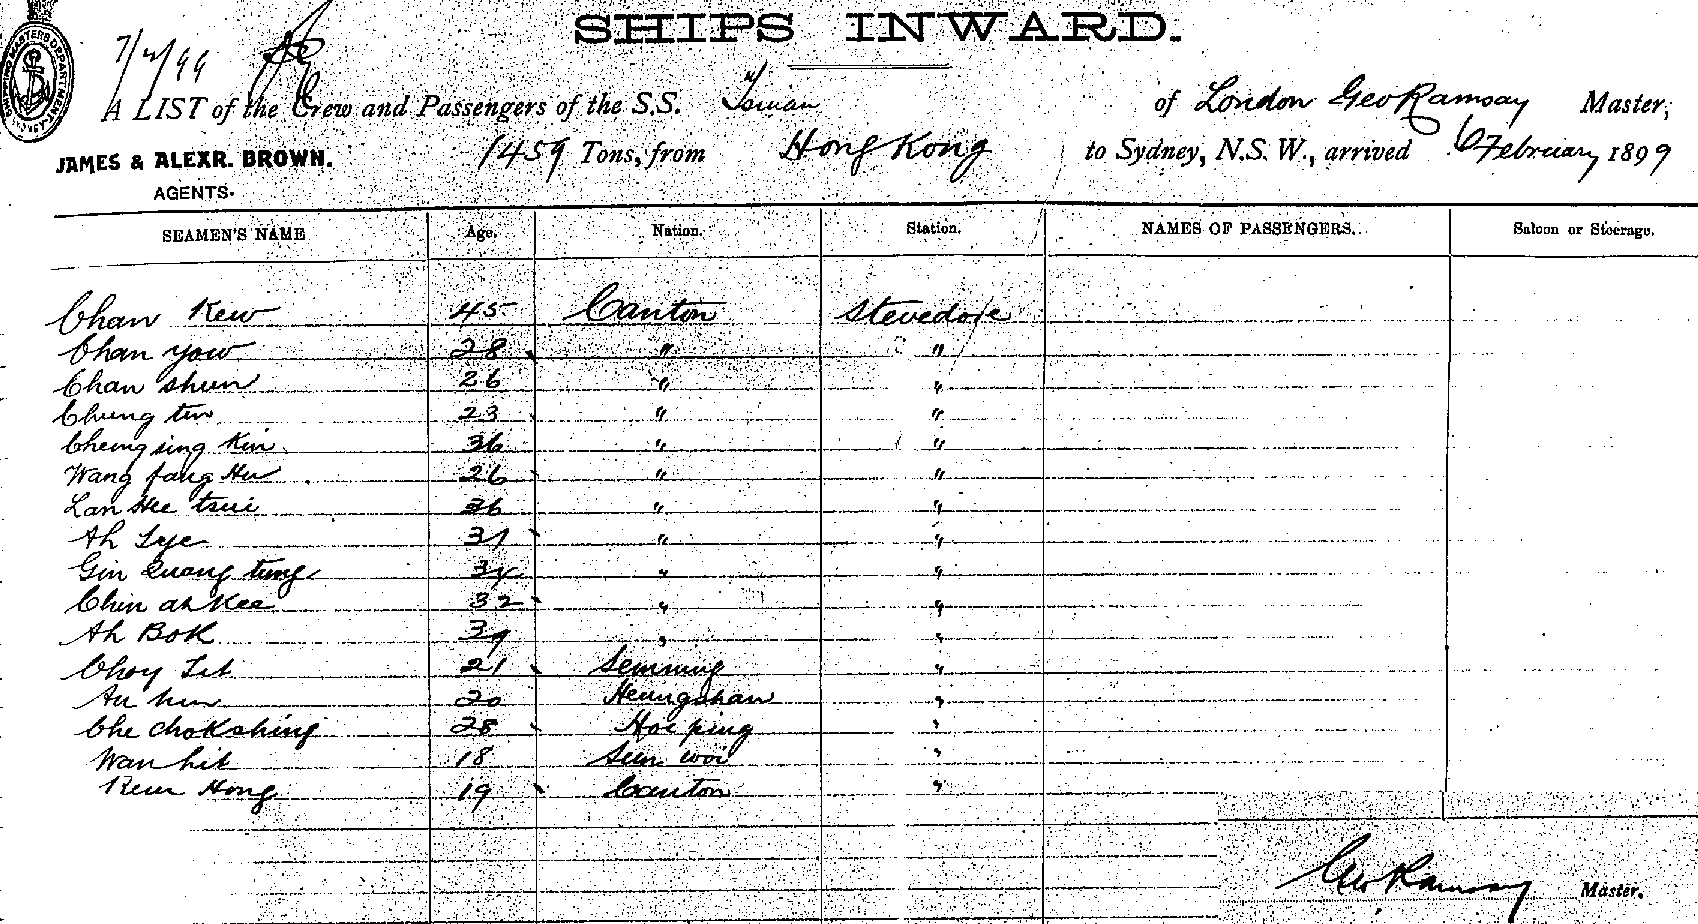 SHIPS INWARD.
7/2/99
A LIST of the Crew and Passengers of the S.S. Tsinan of London Geo Ramsay Master,
JAMES & ALEXR. BROWN. 1459 Tons, from Hong Kong to Sydney, N.S.W., arrived 6 February 1899
AGENTS.
SEAMEN'S NAME Age. Nation. Station. NAMES OF PASSENGERS. Saloon or Steerage.
Chan Kew 45 Canton Stevedore
Chan yow 28 " "
Chan shun 26 " "
Chung tin 23 " "
Cheung sing Kin 36 " "
Wang fang Hu 26 " "
Lan Hee tsui 36 " "
Ah Lye 31 " "
Gin Quong tung 34 " "
Chin ah Kee 32 " "
Ah Bok 39 " "
Choy Lit 21 Sunning "
Au hun 20 Heungshan "
Che chok shing 28 Hoi ping "
Wan hit 18 Sun woi "
Kew Hong 19 Canton "
Geo Ramsay Master.